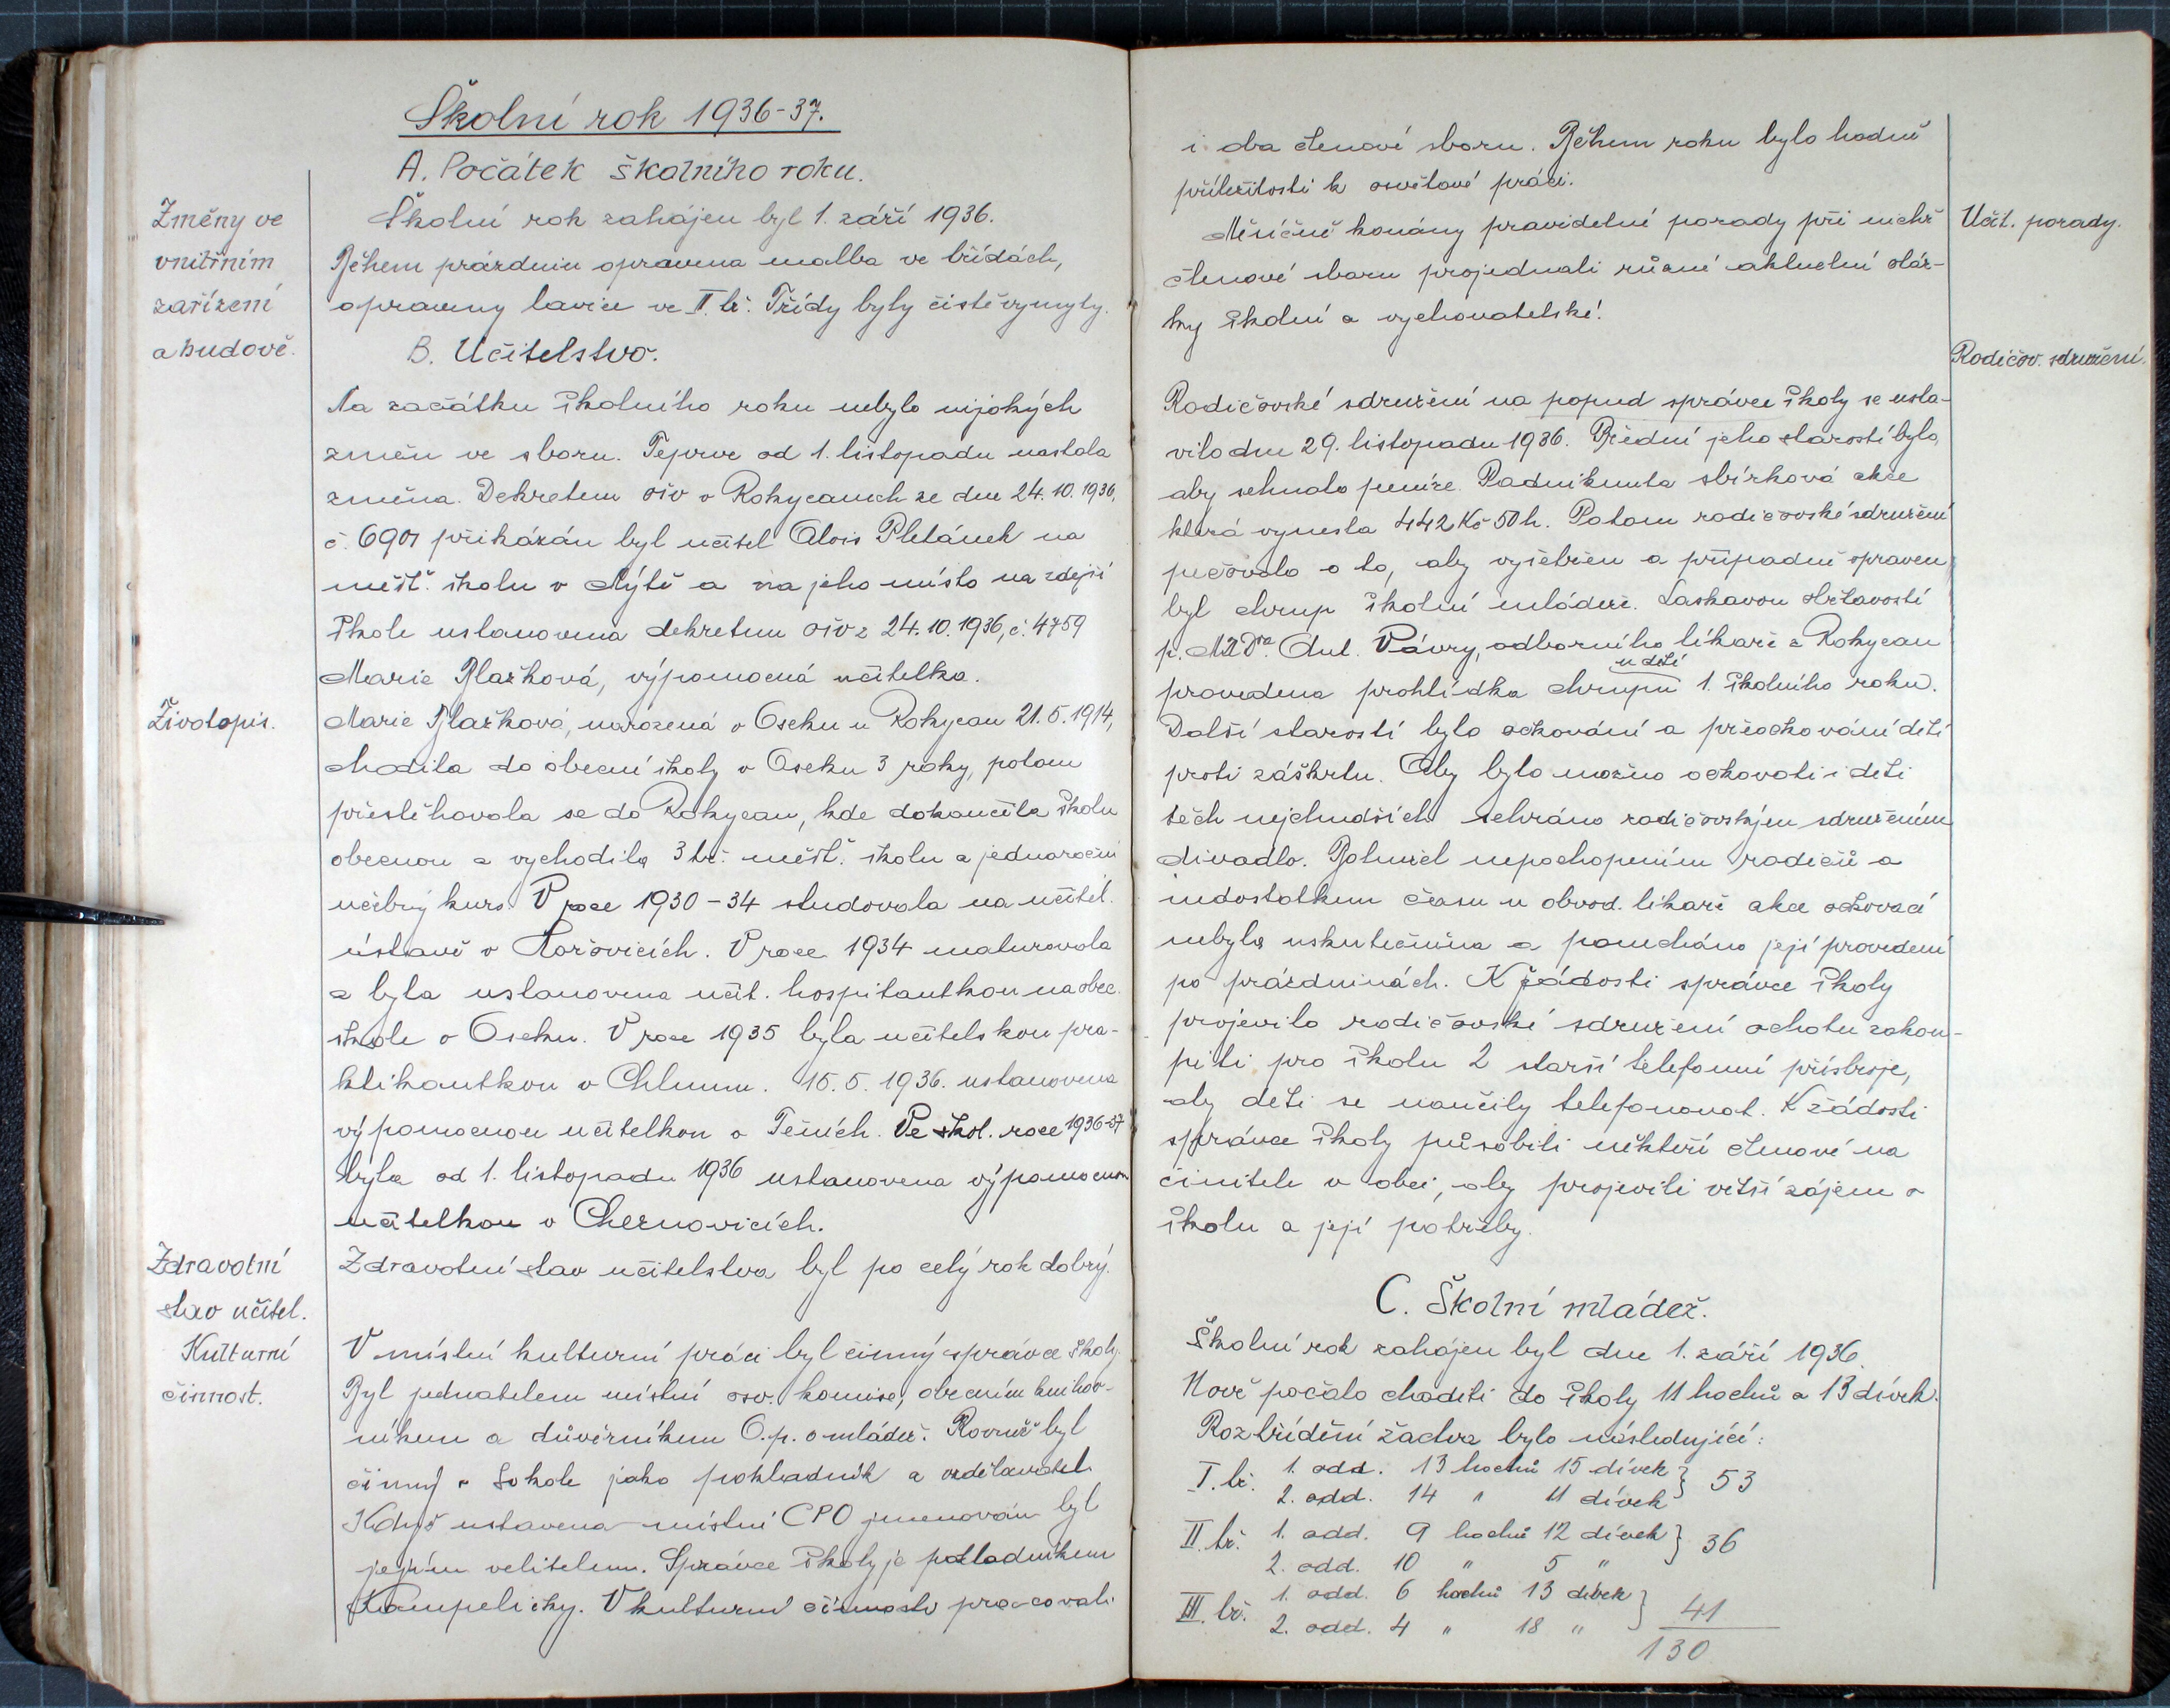 Školní rok 1936-37.
A. Počátek školního roku.
Změny ve
vnitřním
zařízení
a budově.
Školní rok zahájen byl 1. září 1936.
Během prázdnin opravena malba ve třídách,
opraveny lavice ve II. tř. Třídy byly čistě vymyty.
B. Učitelstvo.
Na začátku školního roku nebylo nijakých
změn ve sboru. Teprve od 1. listopadu nastala
změna. Dekretem ošv v Rokycanech ze dne 24.10.1936,
č. 6901 přikázán byl učitel Alois Pletánek na
měšť. školu v Mýtě a na jeho místo na zdejší
škole ustanovena dekretem ošv z 24.10.1936, č. 4759
Marie Blažková, výpomocná učitelka.
Životopis.
Marie Blažková, narozená v Oseku u Rokycan 21.5.1914,
chodila do obecní školy v Oseku 3 roky, potom
přestěhovala se do Rokycan, kde dokončila školu
obecnou a vychodila 3 tř. měšť. školu a jednoroční
učebný kurs. V roce 1930-34 studovala na učitel.
ústavě v Hořovicích. V roce 1934 maturovala
a byla ustanovena učit. hospitantkou na obec.
škole v Oseku. V roce 1935 byla učitelskou pra-
ktikantkou v Chlumu. 15.5.1936. ustanovena
výpomocnou učitelkou v Těních. Ve škol. roce 1936-37
byla od 1. listopadu 1936 ustanovena výpomocnou
učitelkou v Cheznovicích.
Zdravotní
stav učitel.
Zdravotní stav učitelstva byl po celý rok dobrý.
Kulturní
činnost.
V místní kulturní práci byl činný správce školy.
Byl jednatelem místní osv. komise, obecním knihov-
níkem a důvěrníkem O.p. o mládež. Rovněž byl
činný v Sokole jako pokladník a vzdělavatel.
Když ustavena místní CPO jmenován byl
jejím velitelem. Správce školy je pokladníkem
Kampeličky. V kulturní činnosti pracovali
i oba členové sboru. Během roku bylo hodně
příležitosti k osvětové práci.
Učit. porady.
Měsíčně konány pravidelné porady při nichž
členové sboru projednali různé aktuelní otáz-
ky školní a vychovatelské!
Rodičov. sdružení.
Rodičovské sdružení na popud správce školy se usta-
vilo dne 29. listopadu 1936. Přední jeho starostí bylo,
aby sehnalo peníze. Podniknuta sbírková akce
která vynesla 442 Kč 50 h. Potom rodičovské sdružení
pečovalo o to, aby vyšetřen a případně opraven
byl chrup školní mládeže. Laskavou ochotou
p. MUDra. Ant. Vávry, odborního lékaře z Rokycan
u dětí
provedena prohlídka chrupu 1. školního roku.
Další starostí bylo očkování a přeočkování dětí
proti záškrtu. Aby bylo možno očkovati i děti
těch nejchudších sehráno rodičovským sdružením
divadlo. Bohužel nepochopením rodičů a
nedostatkem času u obvod. lékaře akce očkovací
nebyla uskutečněna a ponecháno její provedení
po prázdninách. K žádosti správce školy
projevilo rodičovské sdružení ochotu zakou-
piti pro školu 2 starší telefonní přístroje,
aby děti se naučily telefonovat. K žádosti
správce školy působili někteří členové na
činitele v obci, aby projevili větší zájem o
školu a její potřeby.
C. Školní mládež.
Školní rok zahájen byl dne 1. září 1936.
Nově počalo choditi do školy 11 hochů a 13 dívek.
Roztřídění žactva bylo následující:
I. tř. 1. odd. 13 hochů 15 dívek } 53
2. odd. 14 " 11 dívek
II. tř. 1. odd. 9 hochů 12 dívek } 36
2. odd. 10 " 5 "
III. tř. 1. odd. 6 hochů 13 dívek } 41
2. odd. 4 " 18 "
130